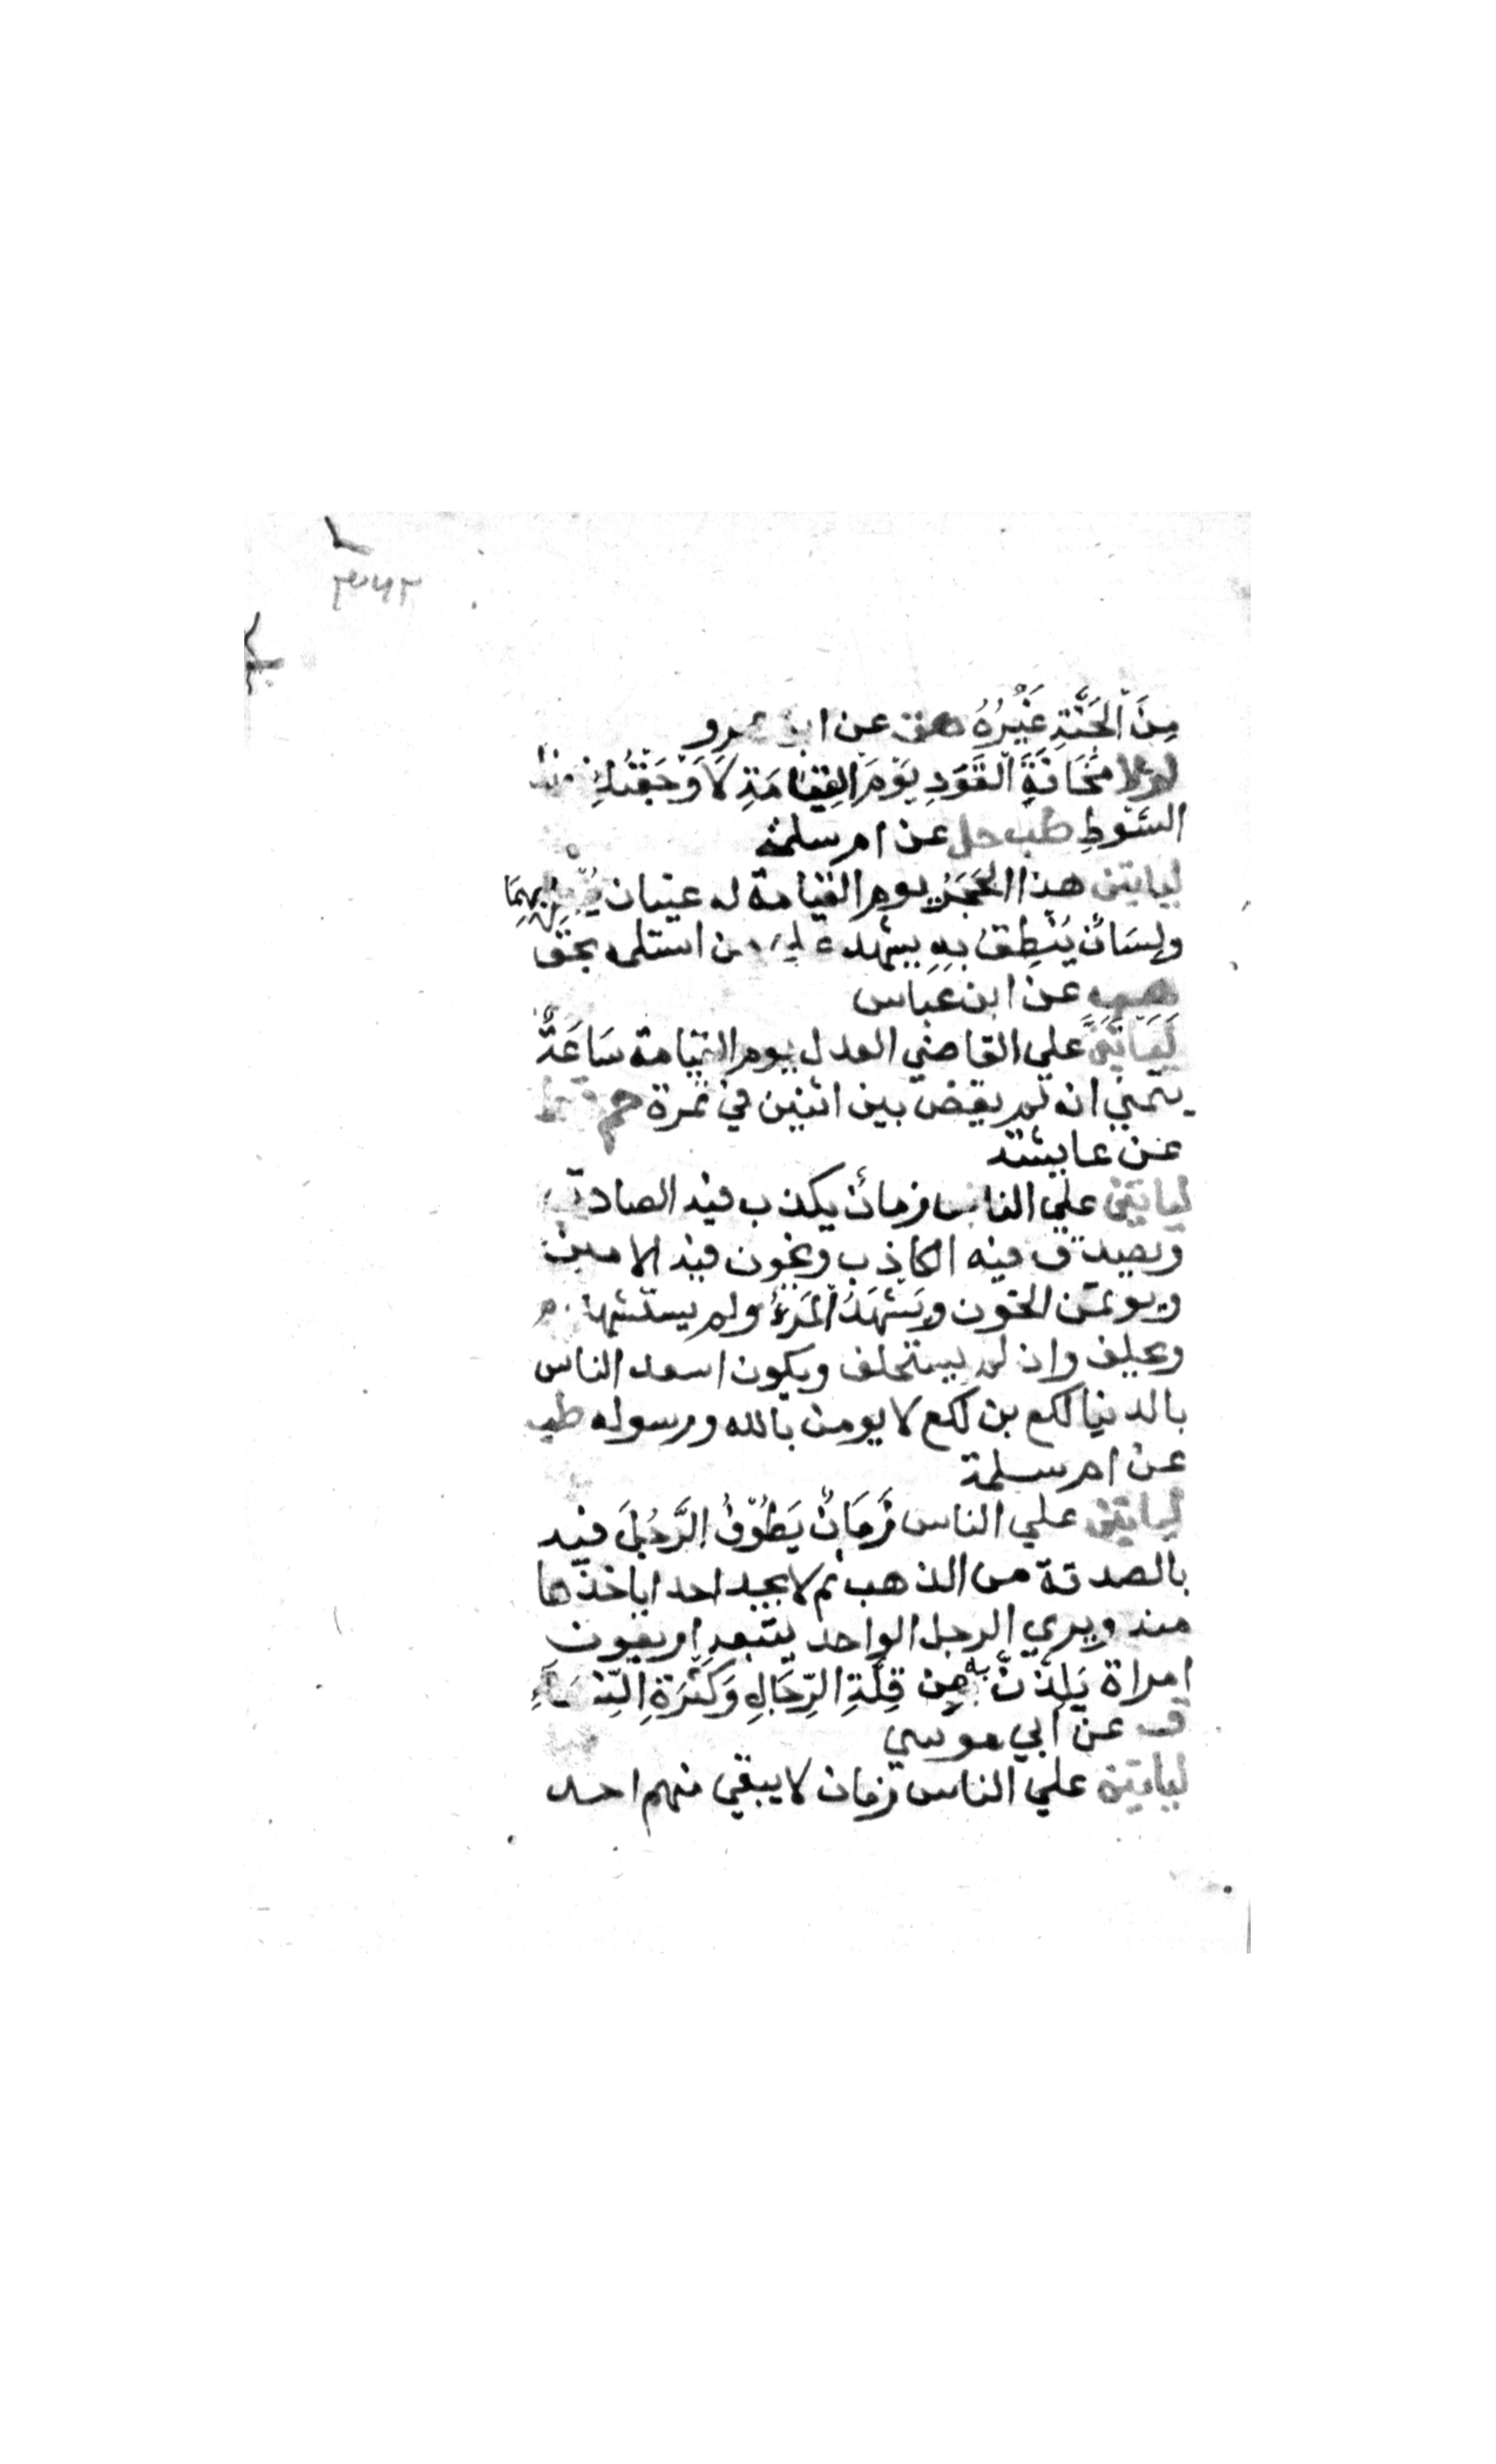 ٣٦٢
مِنَ الجَنَّةِ غَيْرُهُ هق عن ابن عمرو
لولا مَخَافَةُ القَوَدِ يَوْمَ القِيَامَةِ لَأَوْجَعْتُكِ بهذا
السَّوْطِ طب حل عن ام سلمة
لياتين هذا الحَجَرُ يوم القيامة له عينان يُبْصِرُ بِهِمَا
ولِسَانٌ يَنْطِقُ بِهِ يشهد علي من استلمه بحق
هب عن ابن عباس
لَيَاتِيَنَّ علي القاضي العدل يوم القيامة سَاعَةٌ
يتمني انه لم يقض بين اثنين في تمرة حم
عن عايشة
لياتين علي الناس زمانٌ يكذب فيه الصادق
ويصدق فيه الكاذب ويخون فيه الامين
ويوتمن الخون ويَشْهَدُ المَرْءُ ولم يستشهد
ويحلف وان لم يستحلف ويكون اسعد الناس
بالدنيا لكع بن لكع لا يومن بالله ورسوله طب
عن ام سلمة
لياتين علي الناس زَمَانٌ يَطُوفُ الرَّجُلَ فيه
بالصدقة من الذهب ثم لا يجد احدا ياخذها
منه ويري الرجل الواحد يتبعه اربعون
امراة يَلُذْنَ به مِنْ قِلَّةِ الرِّجَالِ وَكَثْرَةِ النِّسَاءِ
ق عن ابي موسي
لياتين علي الناس زمان لا يبقي منهم احد